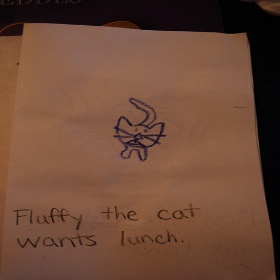 Fluffy the cat
wants lunch.